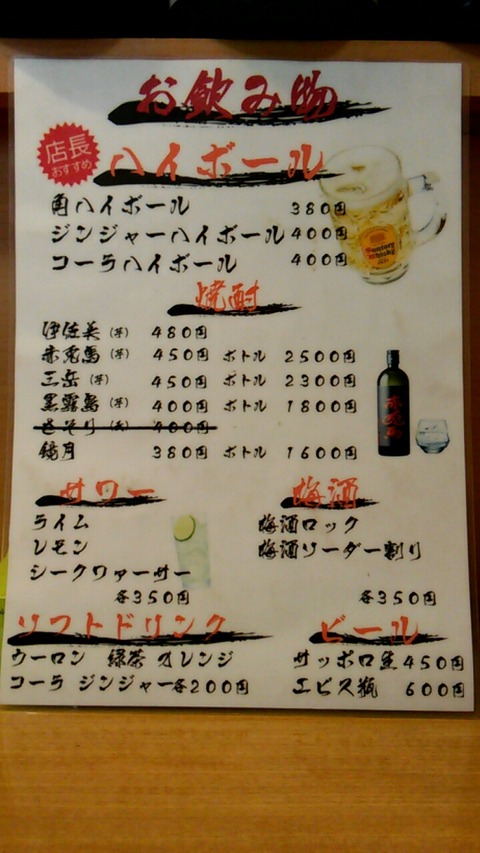 お飲み物
店長
おすすめ
ハイボール
角ハイボール 380円
ジンジャーハイボール 400円
コーラハイボール 400円
焼酎
伊佐美（芋） 480円
赤兎馬（芋） 450円 ボトル 2500円
三岳（芋） 450円 ボトル 2300円
黒霧島（芋） 400円 ボトル 1800円
さそり（麦） 400円
鏡月 380円 ボトル 1600円
サワー
ライム
レモン
シークワァーサー
各350円
梅酒
梅酒ロック
梅酒ソーダー割り
各350円
ソフトドリンク
ウーロン 緑茶 オレンジ
コーラ ジンジャー各200円
ビール
サッポロ生450円
エビス瓶 600円